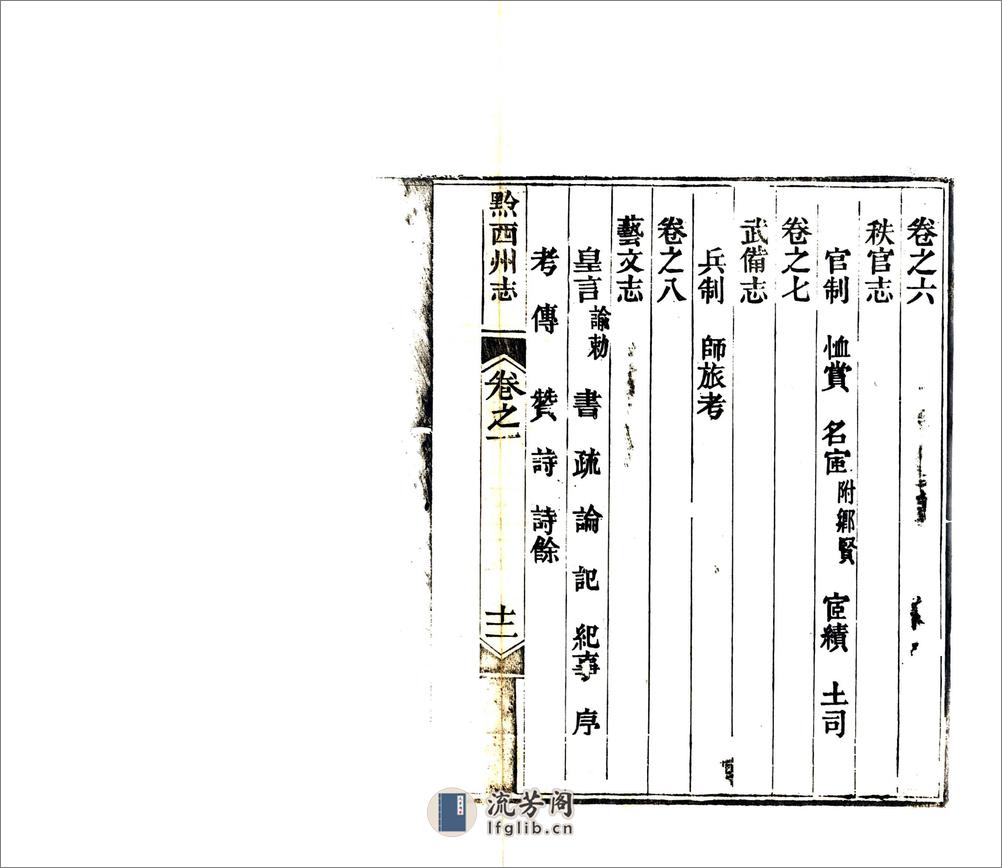 卷之六
秩官志
官制　恤賞　名宦附鄉賢　宦績　土司
卷之七
武備志
兵制　師旅考
卷之八
藝文志
皇言諭勅　書　疏　論　記　紀事　序
考　傳　贊　詩　詩餘
黔西州志　卷之一　十二
流芳阁
lfglib.cn